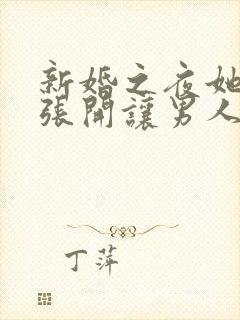 新婚之夜她
張開讓男人
丁萍